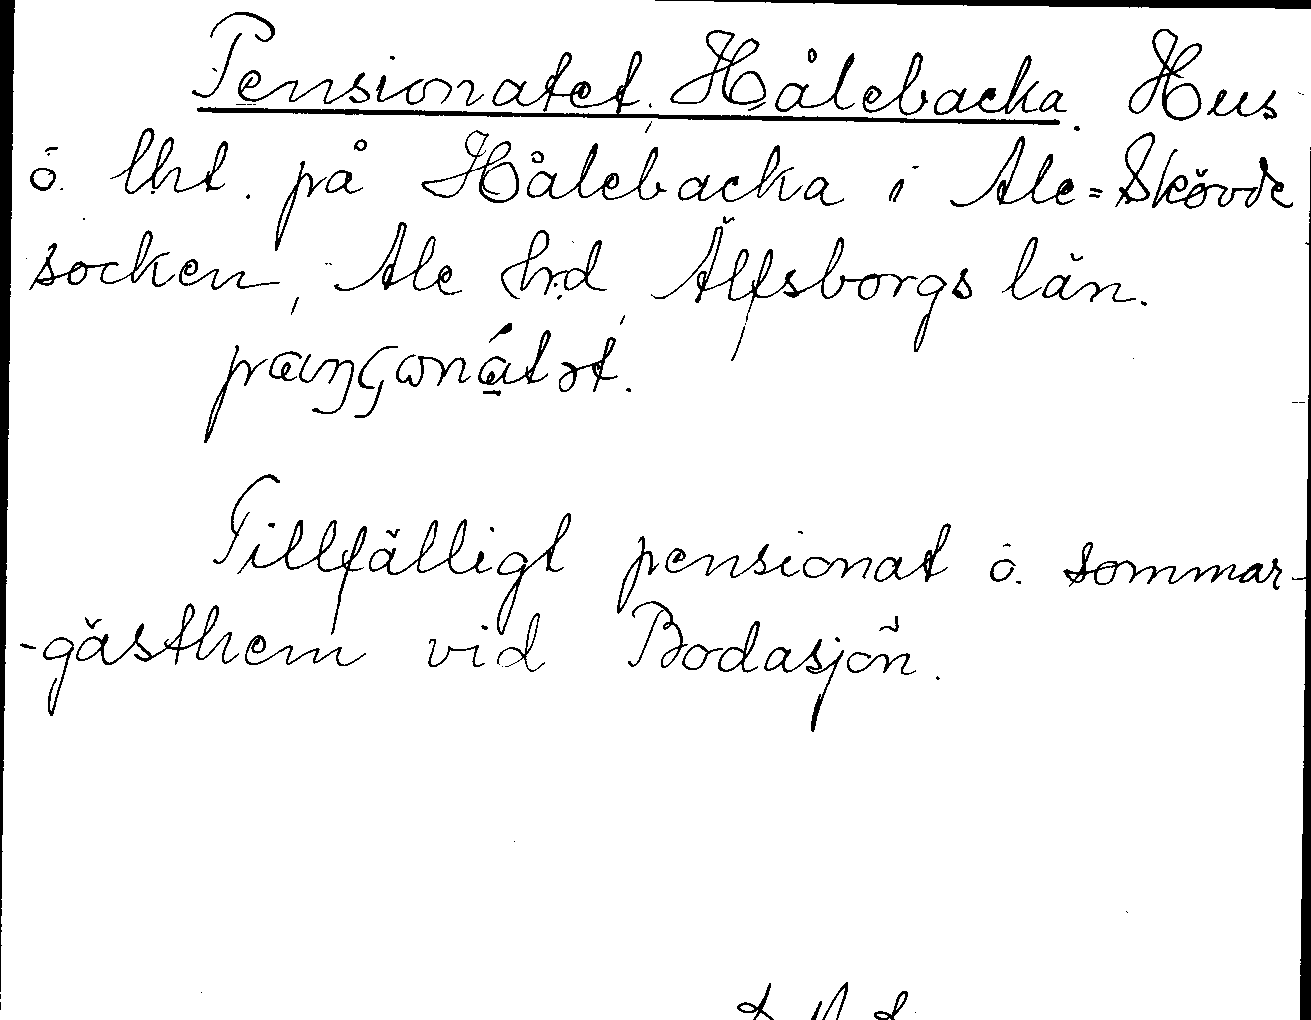 Pensionatet, Hålebacka. Hus
ö. lht. på Hålebacka i Ale=Skövde
socken, Ale hrd, Älfsborgs län.
Tillfälligt pensionat ö. sommar-
-gästhem vid Bodasjön.